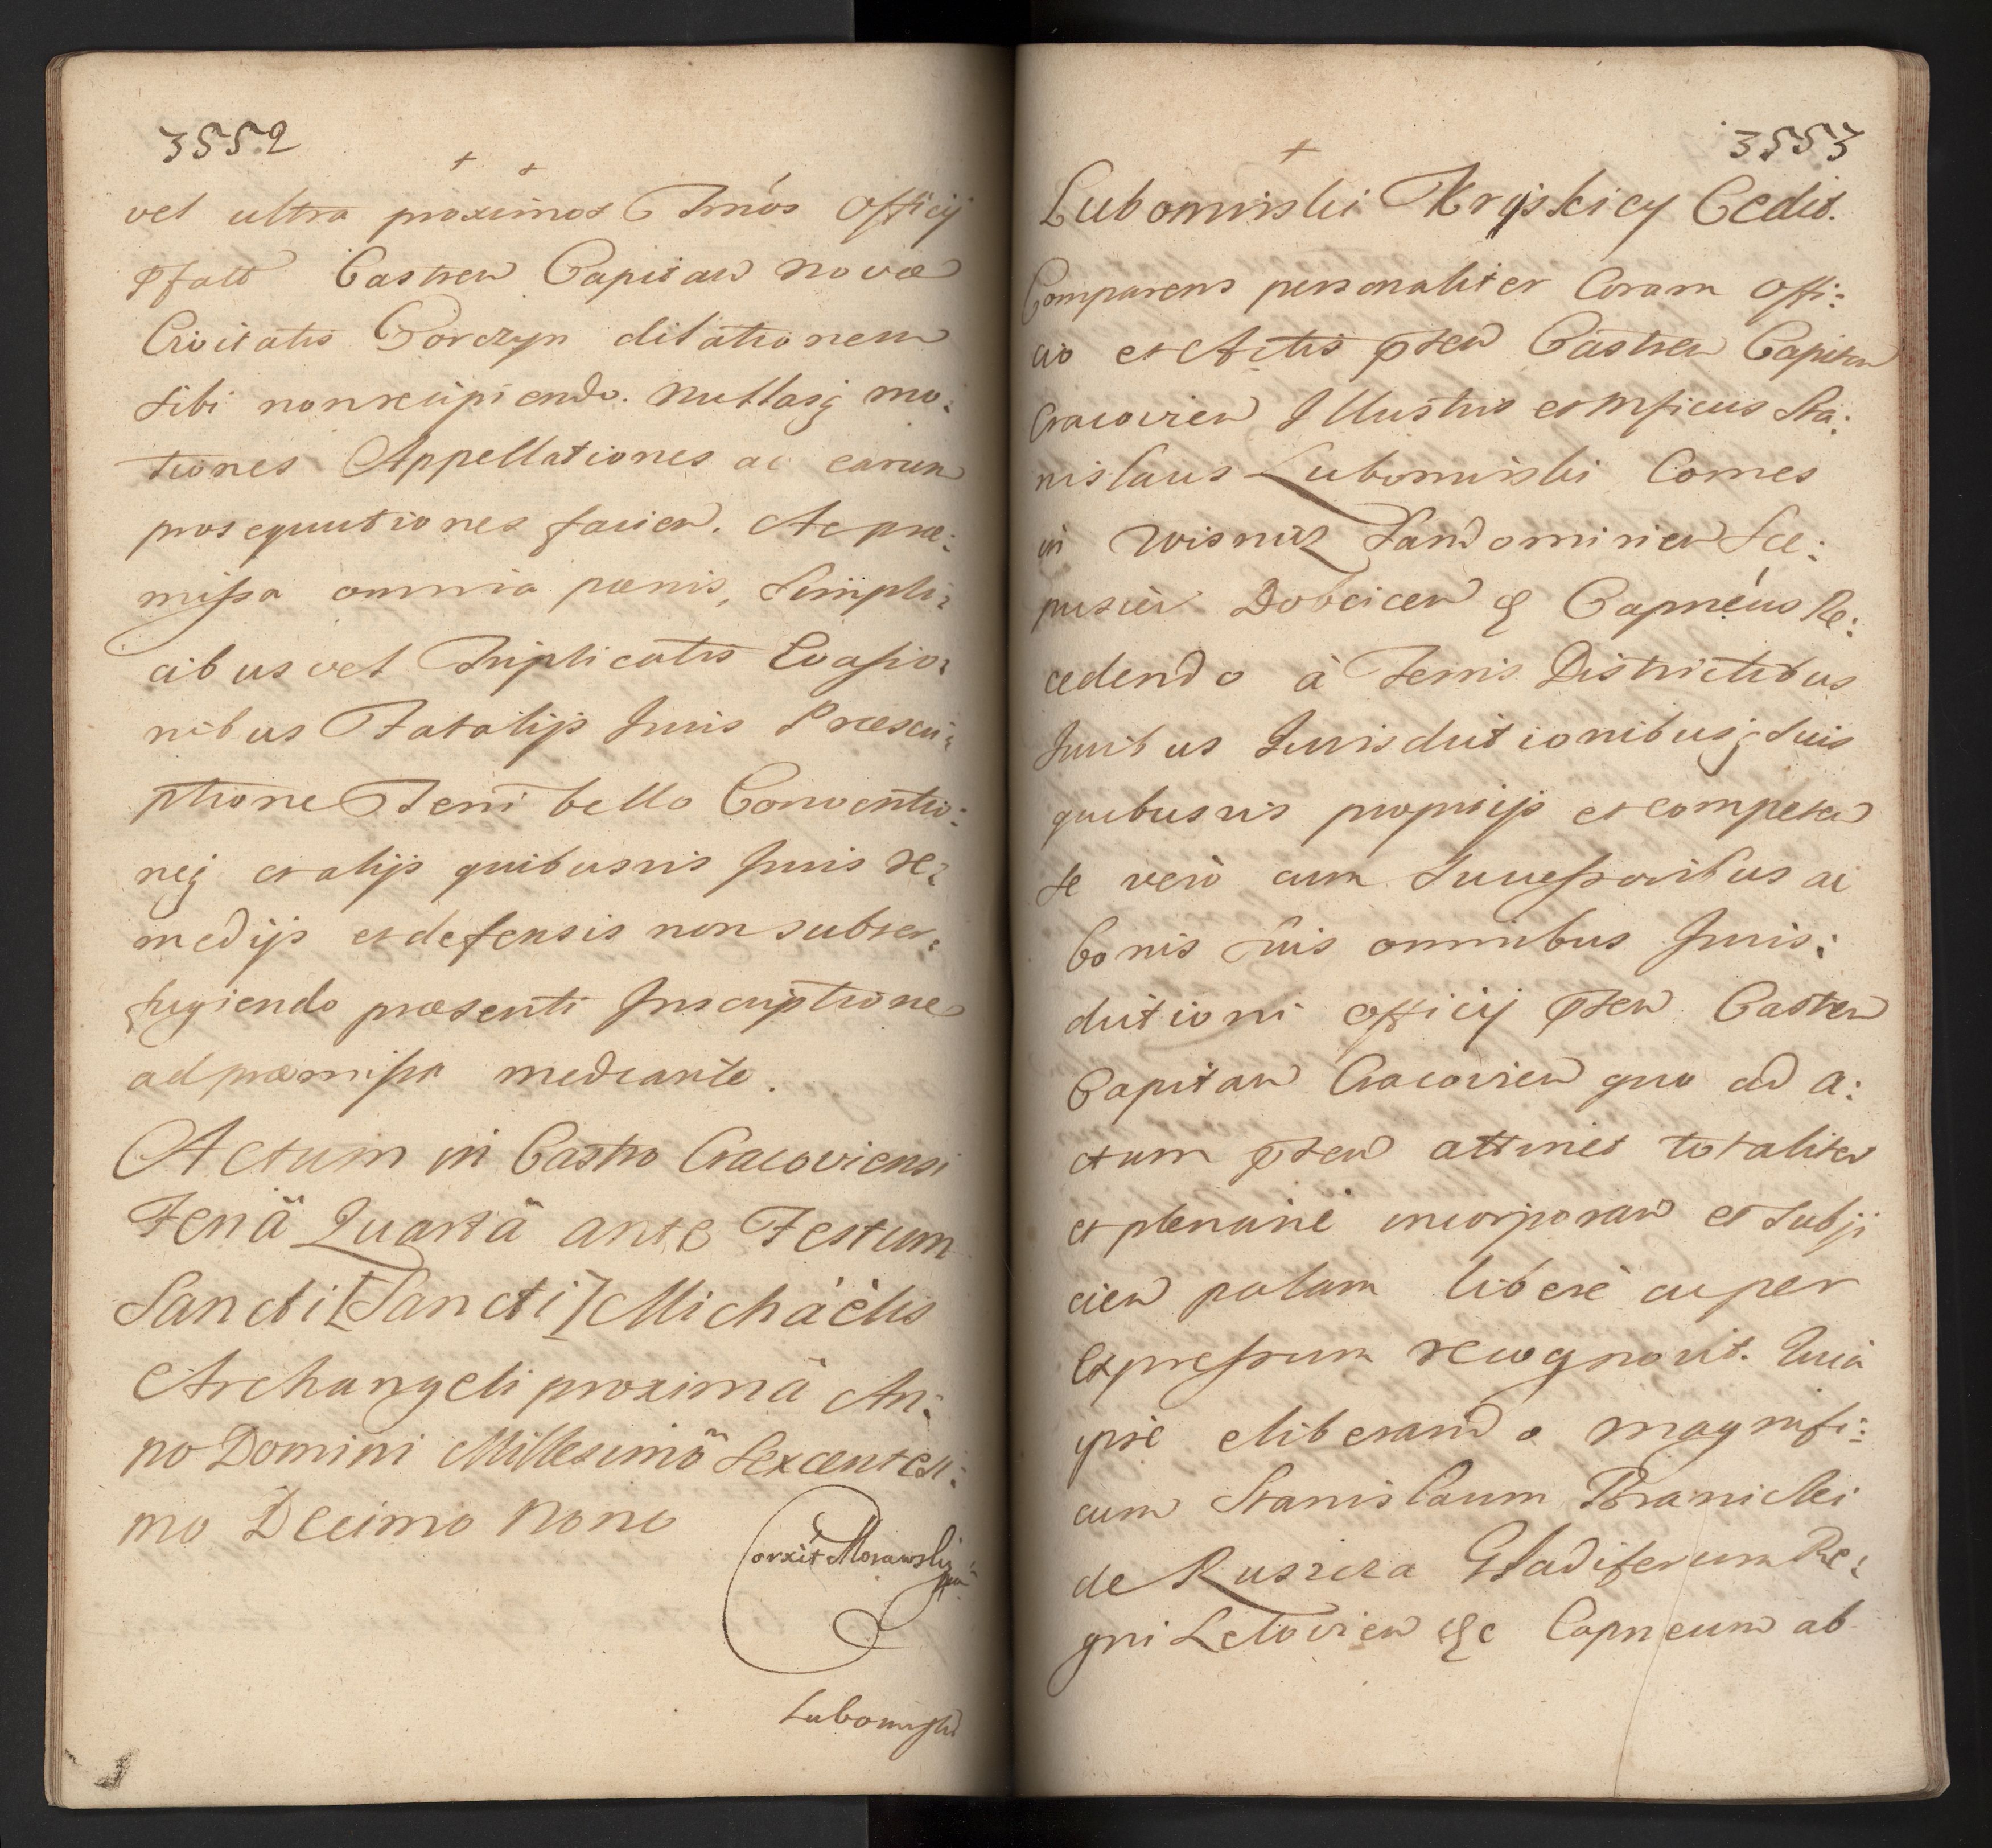 3552
vel ultra proximos Tmos Officij
Pfato Castren Capitan novæ
Civitatis Korczyn dilationem
sibi non recipiendo. Nullasq mo:
tiones Appellationes ac earun
prosequutiones facien. Ac præ:
missa omnia pænis, Simpli:
cibus vel Triplicatis Evasio:
nibus Fatalijs Juris Præscri:
ptione Terri bello Conventio:
neq et alijs quibusvis Juris re:
medijs et defensis non subter:
fugiendo præsenti Inscriptione
ad præmissa mediante.
Actum in Castro Cracoviensi
Feriâ Quartâ ante Festum
Sancti [Sancti] Michaëlis
Archangeli proximâ An:
no Domini Millesimô Sexcentesi:
mo Decimo Nono
Corxit Morawski
Lubomirski
3553
Lubomirski Kryskicy Cedit.
Comparens personaliter Coram Offi:
cio et Actis pten Castren Capitan
Cracovien Illustris et Mficus Sta:
nislaus Lubomirski Comes
in Wisnicz Sandomirien Sce:
pusien Dobcicen & Capneus Re:
cedendo à Terris Districtibus
Juribus Jurisdictionibusq suis
quibusvis proprijs et competen
se verò cum Successoribus ac
bonis suis omnibus Juris:
dictioni officij pten Castren
Capitan Cracovien quo ad a:
ctum pten attinet totaliter
et plenarie incorporan et subji
cien palam liberè ac per
Expressum recognovit. Quia
ipse eliberando Magnifi:
cum Stanislaum Branicki
de Ruszcza Gladiferum Re:
gni Lelovien &c Capneum ab